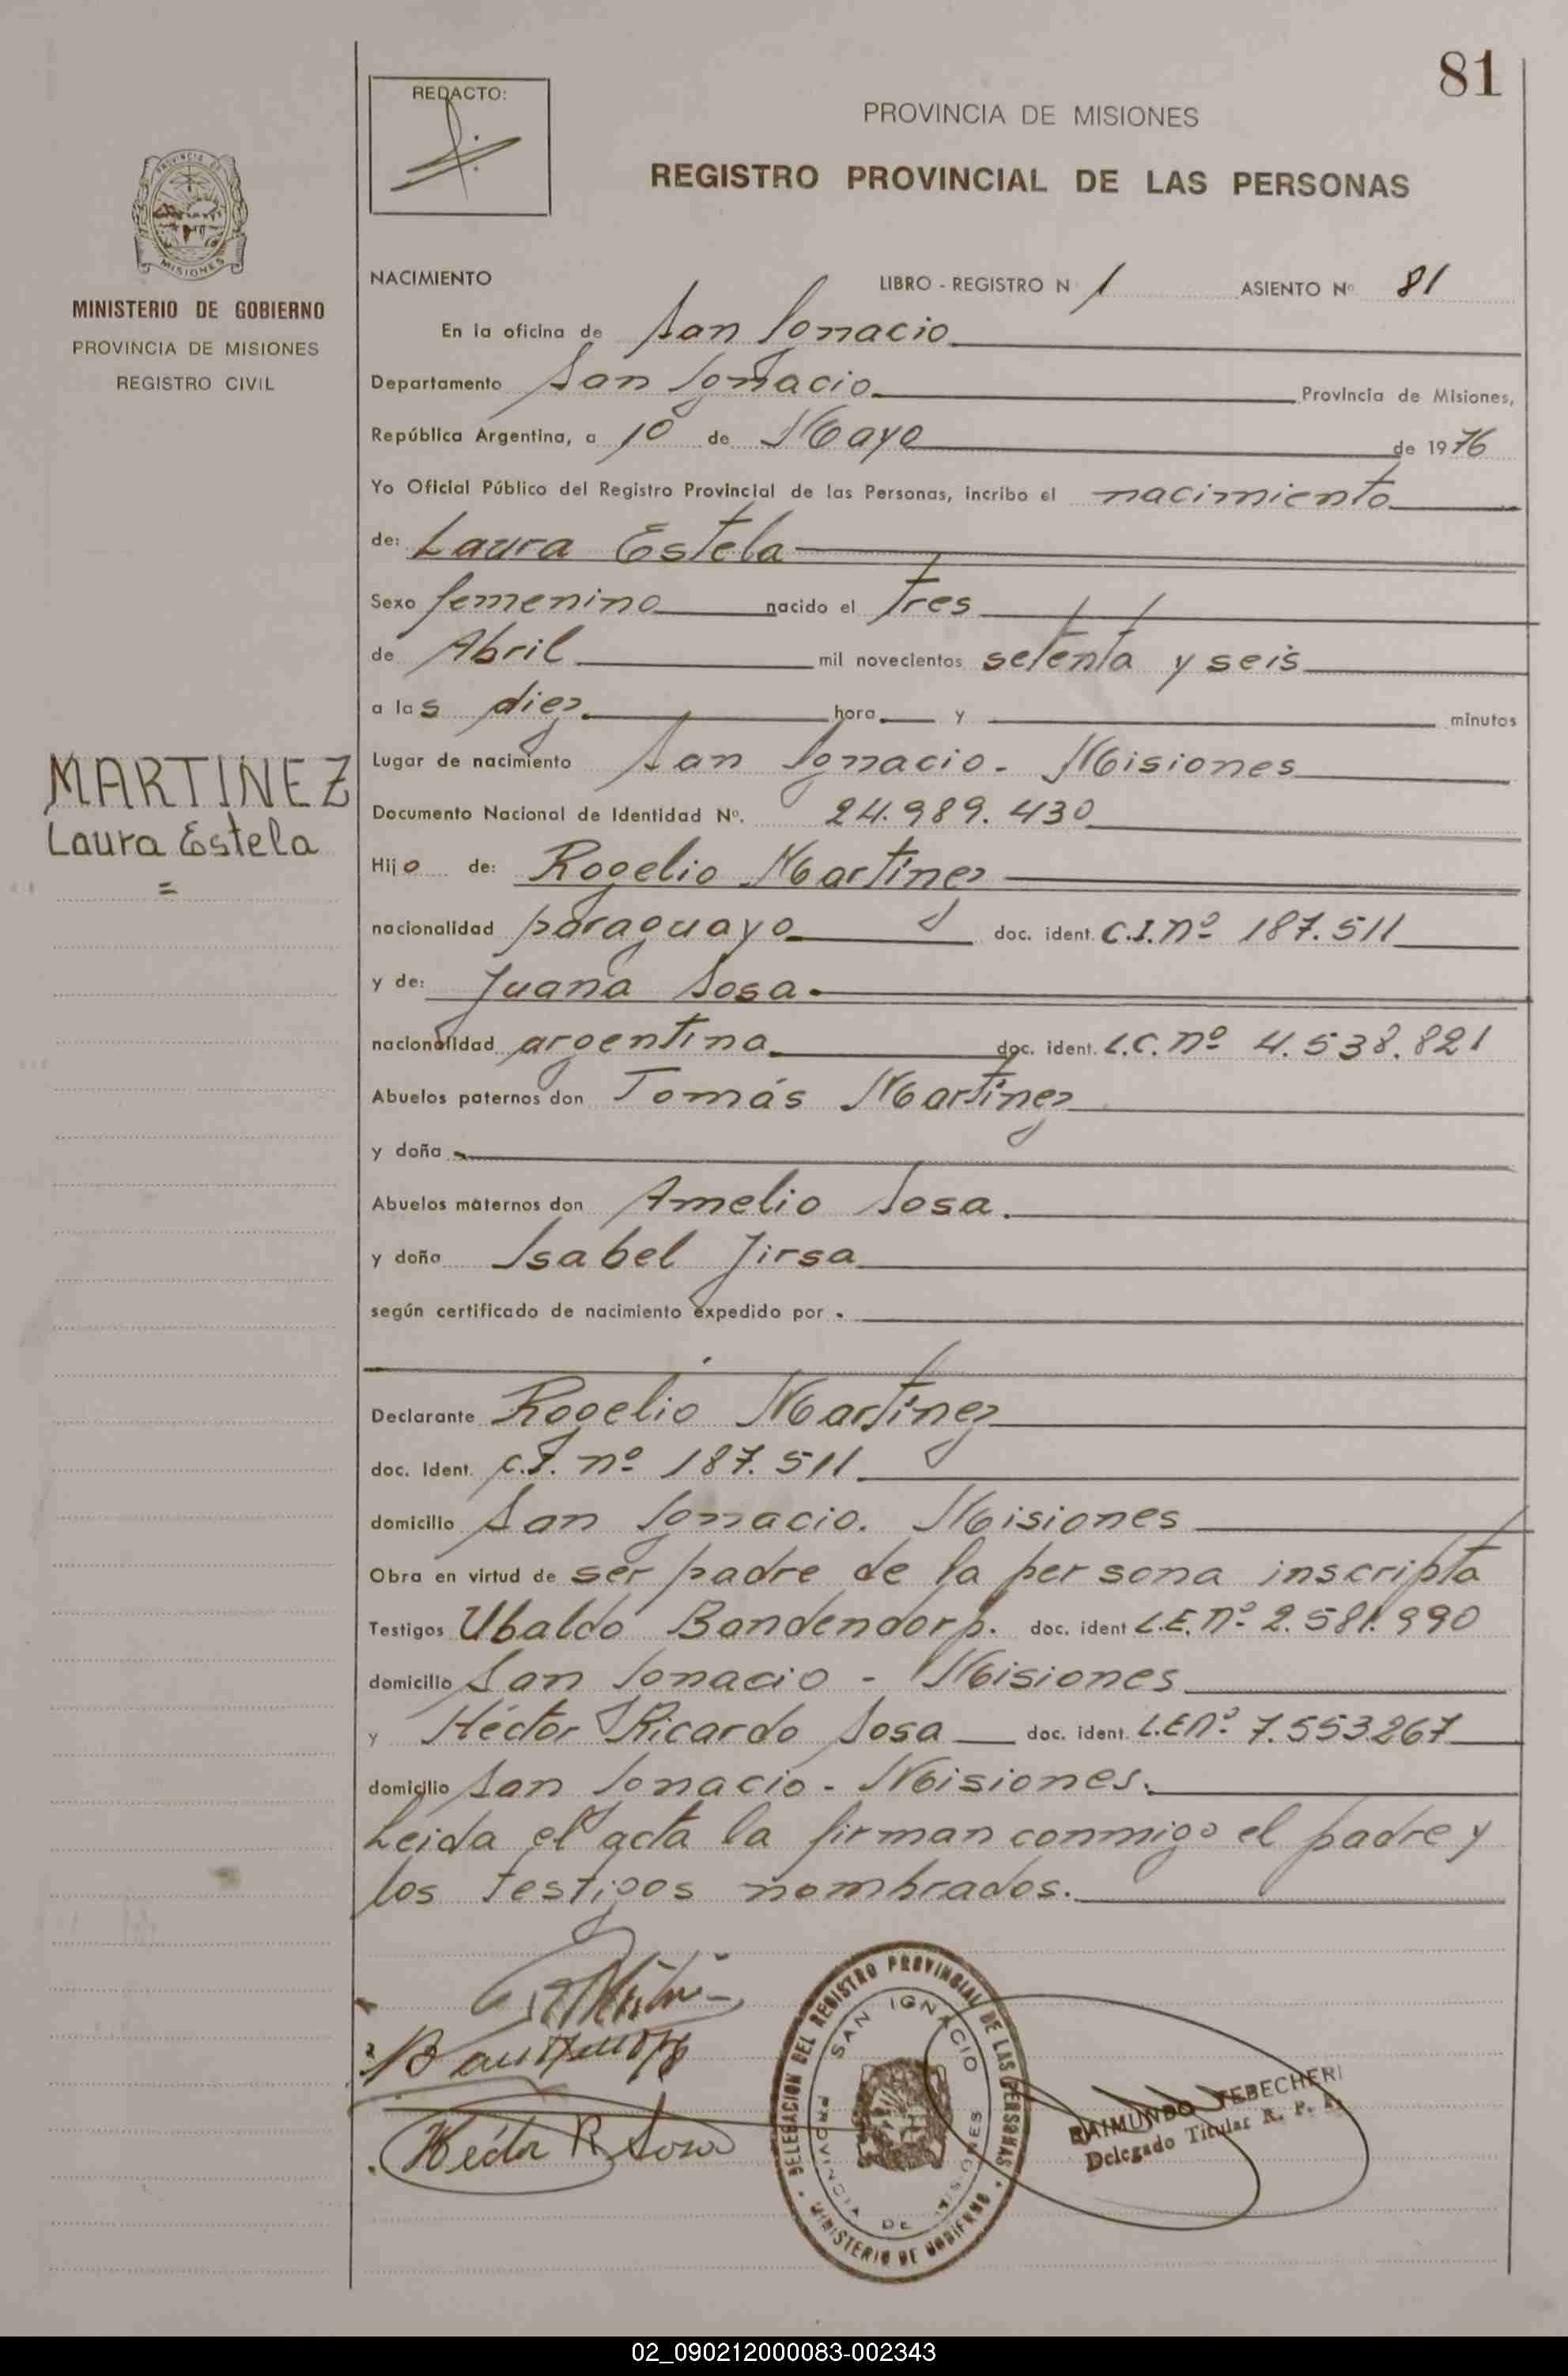 81
REDACTO:
PROVINCIA DE MISIONES
REGISTRO PROVINCIAL DE LAS PERSONAS
PROVINCIA DE
MISIONES
MINISTERIO DE GOBIERNO
PROVINCIA DE MISIONES
REGISTRO CIVIL
NACIMIENTO LIBRO - REGISTRO N 1 ASIENTO Nº 81
En la oficina de San Ignacio
Departamento San Ignacio Provincia de Misiones,
República Argentina, a 10 de Mayo de 1976
Yo Oficial Público del Registro Provincial de las Personas, incribo el nacimiento
de: Laura Estela
Sexo femenino nacido el tres
de Abril mil novecientos setenta y seis
a las diez hora y minutos
Lugar de nacimiento San Ignacio - Misiones
MARTINEZ
Laura Estela
=
Documento Nacional de Identidad Nº. 24.989.430
Hijo de: Rogelio Martínez
nacionalidad paraguayo doc. ident. C.I. nº 187.511
y de: Juana Sosa
nacionalidad argentina doc. ident. L.C. nº 4.538.821
Abuelos paternos don Tomás Martínez
y doña
Abuelos maternos don Amelio Sosa.
y doña Isabel Jirsa
según certificado de nacimiento expedido por
Declarante Rogelio Martínez
doc. Ident. C.I. nº 187.511
domicilio San Ignacio. Misiones
Obra en virtud de ser padre de la persona inscripta
Testigos Ubaldo Bandendorp. doc. ident L.E. nº 2.581.990
domicilio San Ignacio - Misiones
y Héctor Ricardo Sosa doc. ident. L.E nº 7.553267
domicilio San Ignacio - Misiones.
Leida el acta la firman conmigo el padre y
los testigos nombrados.
Héctor R. Sosa
DELEGACION DEL REGISTRO PROVINCIAL DE LAS PERSONAS
MINISTERIO DE GOBIERNO
SAN IGNACIO
PROVINCIA DE MISIONES
RAIMUNDO TEBECHERI
Delegado Titular R. P. P.
02_090212000083-002343